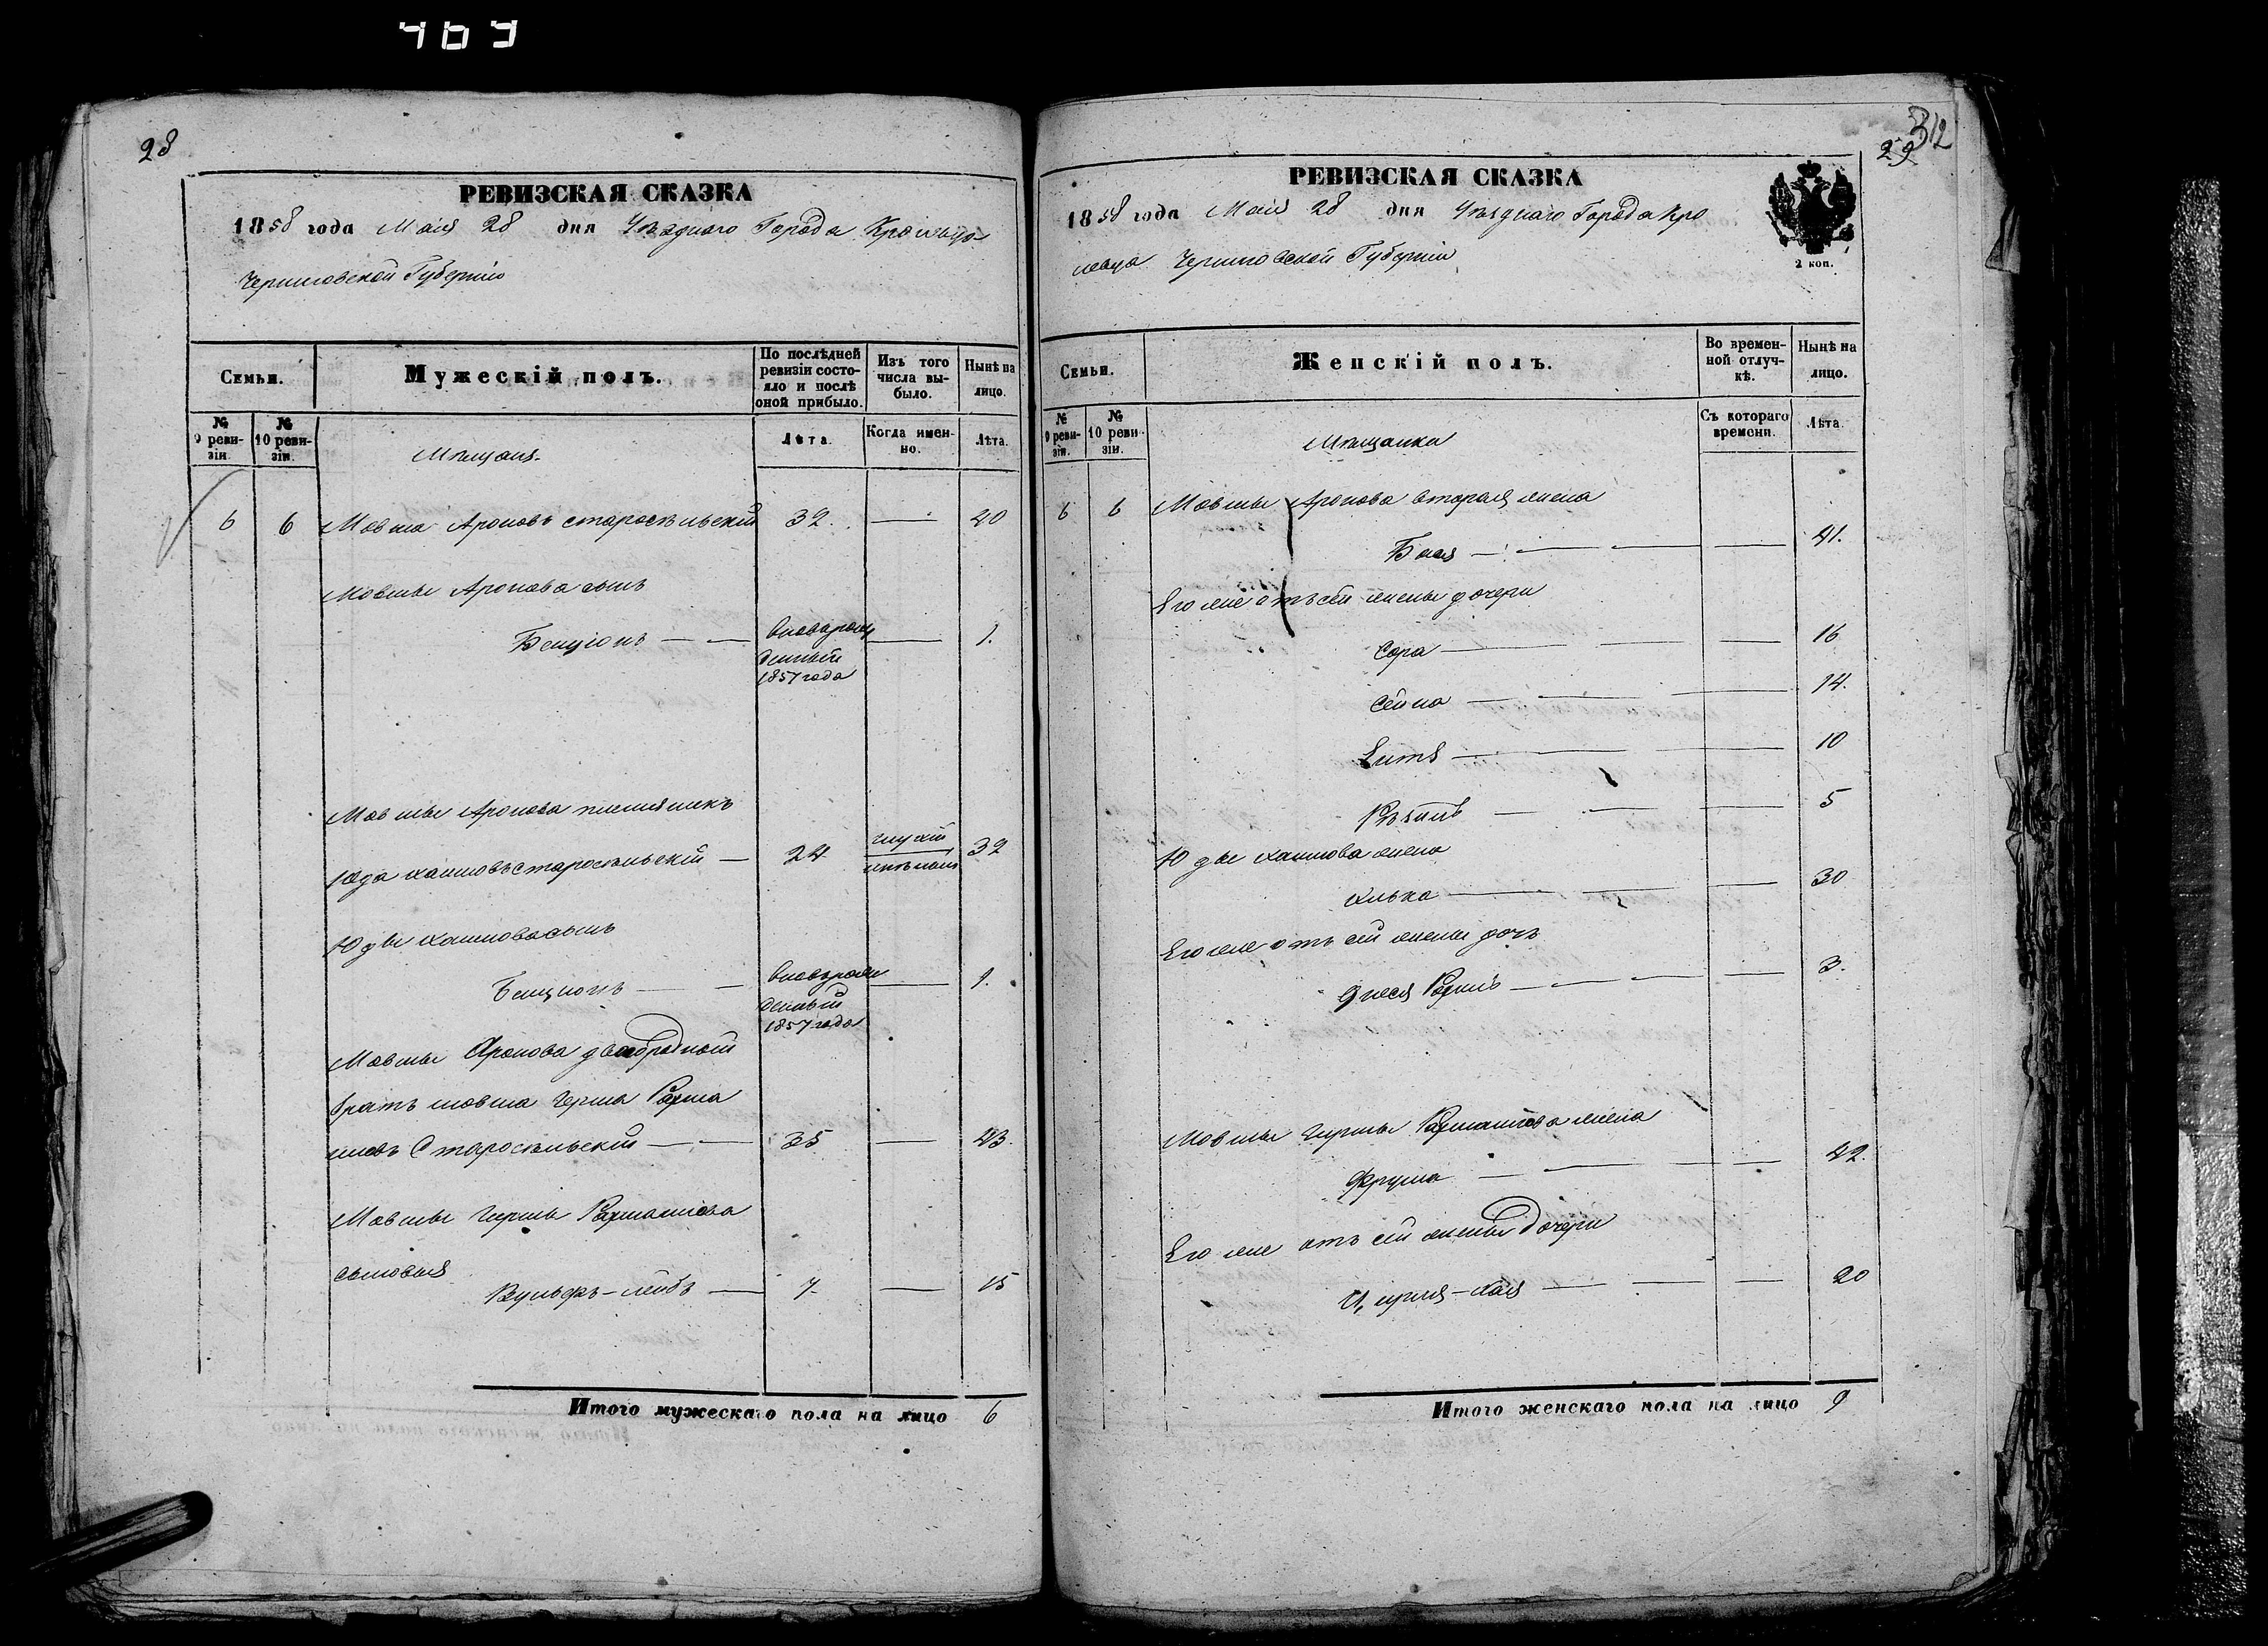 469
28
РЕВИЗСКАЯ СКАЗКА
1858 года Маія 28 дня Уѣзднаго Города Кролевца
Черниговской Губерніи
Семьи.
Мужескій полъ.
По послѣдней ревизіи состояло и послѣ оной прибыло.
Изъ того числа выбыло.
Нынѣ на лицо.
№ 9 ревизіи.
№ 10 ревизіи.
Мѣщане
Лѣта.
Когда именно.
Лѣта.
6 6 Мовша Ароновъ Старосельскій 32. — 40
Мовшы Аронова сынъ
Бенціонъ — — вноворожденный 1857 года — 1.
Мовшы Аронова племяникъ
Юда Хаимовъ Старосельскій — 24 глухій 32
Юды Хаимова сынъ
Бенціонъ — — вноворожденный 1857 года — 1.
Мовшы Аронова двоюродный
братъ Мовша Герша Рахма
новъ Старосельскій — — 35 — 43.
Мовшы Герша Рахманова
сыновья
Вульфъ-Лейбъ — 7. — 15
Итого мужескаго пола на лицо 6
29
312
РЕВИЗСКАЯ СКАЗКА
1858 года Маія 28 дня Уѣзднаго Города Кро
левца Черниговской Губерніи
2 коп.
Семьи.
Женскій полъ.
Во временной отлучкѣ.
Нынѣ на лицо.
№ 9 ревизіи.
№ 10 ревизіи.
Мѣщанки
Съ котораго времени.
Лѣта.
6 6 Мовшы Аронова вторая жена
Бася — — — — 41.
Его же отъ сей жены дочери
Сора — — — 16
Сейна — — — 14.
— — — 10
— — — 5
Юды Хаимова жена
Хлька — — — 30
Его же отъ сей жены дочь
— — — 3.
Мовшы Герша Рахманова жена
Фрума — — — — 42.
Его же отъ сей жены дочери
-Хая — — — 20
Итого женскаго пола на лицо 9